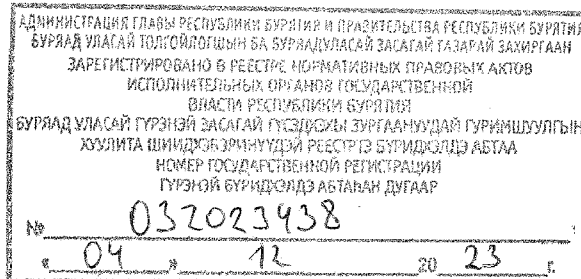 АДМИНИСТРАЦИЯ ГЛАВЫ РЕСПУБЛИКИ БУРЯТИЯ И ПРАВИТЕЛЬСТВА РЕСПУБЛИКИ БУРЯТИЯ
БУРЯАД УЛАСАЙ ТОЛГОЙЛОГШЫН БА БУРЯАД УЛАСАЙ ЗАСАГАЙ ГАЗАРАЙ ЗАХИРГААН
ЗАРЕГИСТРИРОВАНО В РЕЕСТРЕ НОРМАТИВНЫХ ПРАВОВЫХ АКТОВ
ИСПОЛНИТЕЛЬНЫХ ОРГАНОВ ГОСУДАРСТВЕННОЙ
ВЛАСТИ РЕСПУБЛИКИ БУРЯТИЯ
БУРЯАД УЛАСАЙ ГҮРЭНЭЙ ЗАСАГАЙ ГҮЙСЭДХЭХЫ ЗУРГААНУУДАЙ ГУРИМШУУЛГЫН
ХУУЛИТА ШИИДХЭБЭРИНҮҮДЭЙ РЕЕСТРТЭ БҮРИДХЭЛДЭ АБТАА
НОМЕР ГОСУДАРСТВЕННОЙ РЕГИСТРАЦИИ
ГҮРЭНЭЙ БҮРИДХЭЛДЭ АБТАҺАН ДУГААР
№ 032023438
« 04 » 12 20 23 г.